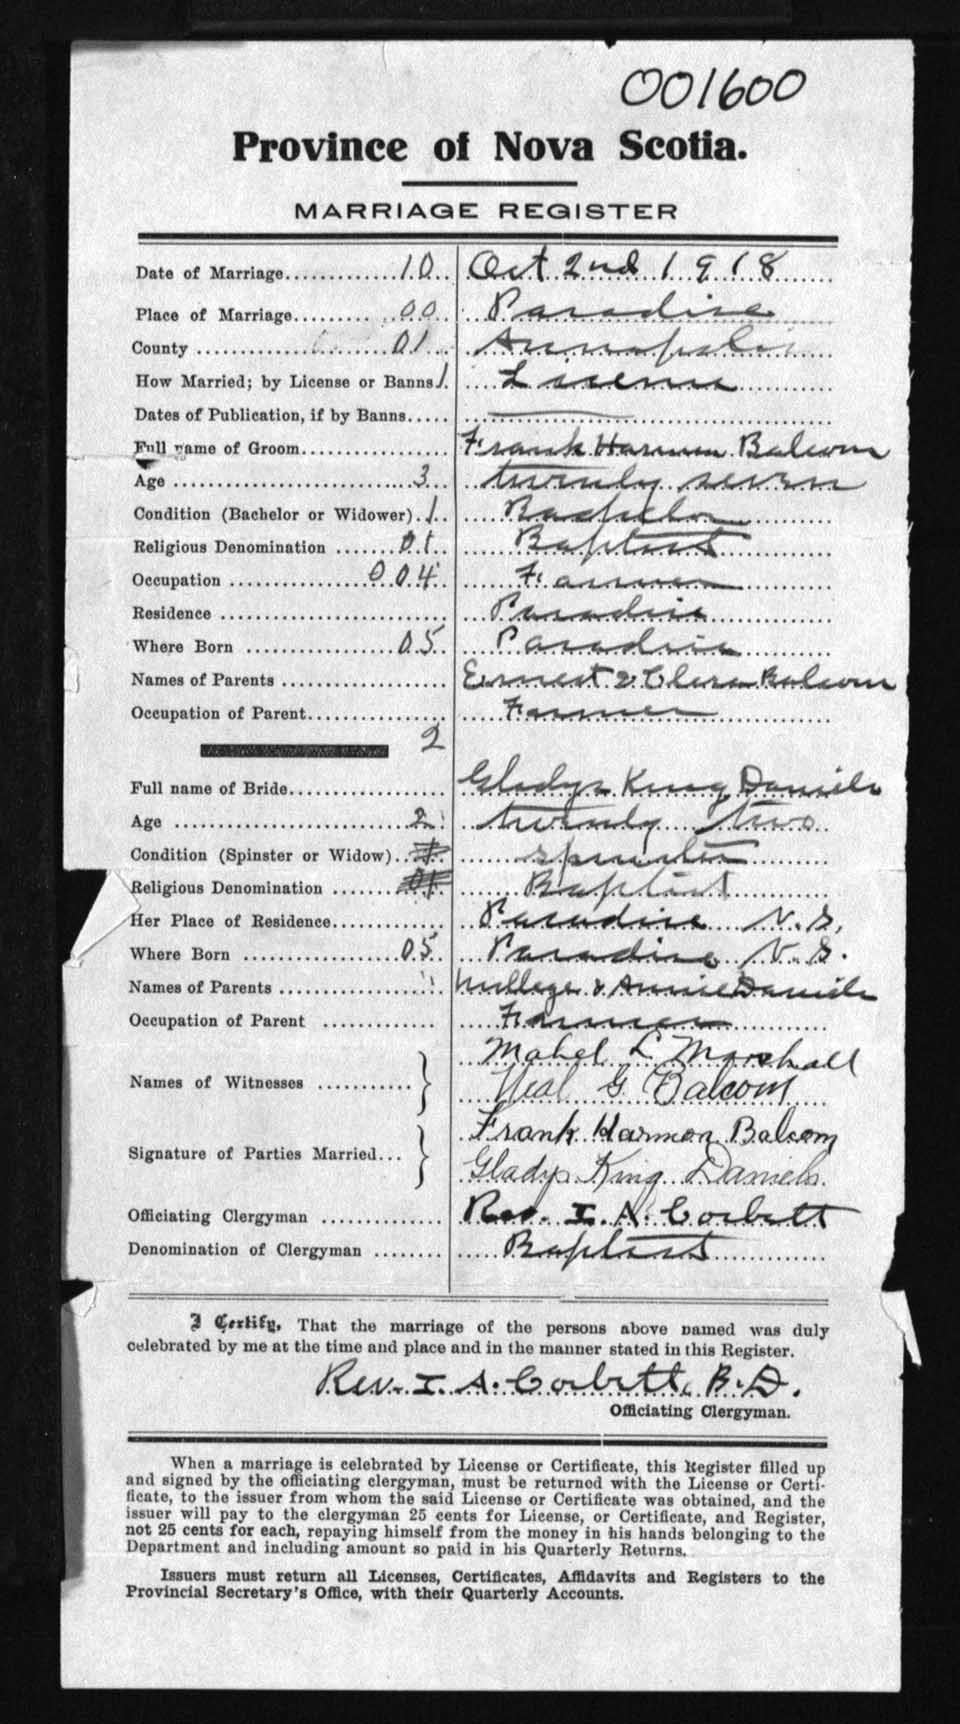 001600
Province of Nova Scotia.
MARRIAGE REGISTER
Date of Marriage.............10.. Oct 2nd 1918
Place of Marriage.........00.. Paradise
County ..................01... Annapolis
How Married; by License or Banns 1. License
Dates of Publication, if by Banns.....
Full name of Groom................. Frank Harmon Balcom
Age ............................3... twenty seven
Condition (Bachelor or Widower)..1.. Bachelor
Religious Denomination .......01.. Baptist
Occupation ..............004.. Farmer
Residence .......................... Paradise
Where Born .................05.. Paradise
Names of Parents ................... Ernest & Clera Balcom
Occupation of Parent................ Farmer
2
Full name of Bride.................. Gladys King Daniels
Age ...........................2.. twenty two
Condition (Spinster or Widow)..1.. spinster
Religious Denomination .......01.. Baptist
Her Place of Residence............. Paradise N.S.
Where Born ..................05.. Paradise N.S.
Names of Parents ................... & Annie Daniels
Occupation of Parent .............. Farmer
Mabel L Marshall
Names of Witnesses ............ }
Neal G Balcom
Frank Harmon Balcom
Signature of Parties Married... }
Gladys King Daniels.
Officiating Clergyman .............. Rev. I. A. Corbett
Denomination of Clergyman ........ Baptist
I Certify, That the marriage of the persons above named was duly
celebrated by me at the time and place and in the manner stated in this Register.
Rev. I. A. Corbett, B.D.
Officiating Clergyman.
When a marriage is celebrated by License or Certificate, this Register filled up
and signed by the officiating clergyman, must be returned with the License or Certi-
ficate, to the issuer from whom the said License or Certificate was obtained, and the
issuer will pay to the clergyman 25 cents for License, or Certificate, and Register,
not 25 cents for each, repaying himself from the money in his hands belonging to the
Department and including amount so paid in his Quarterly Returns.
Issuers must return all Licenses, Certificates, Affidavits and Registers to the
Provincial Secretary's Office, with their Quarterly Accounts.